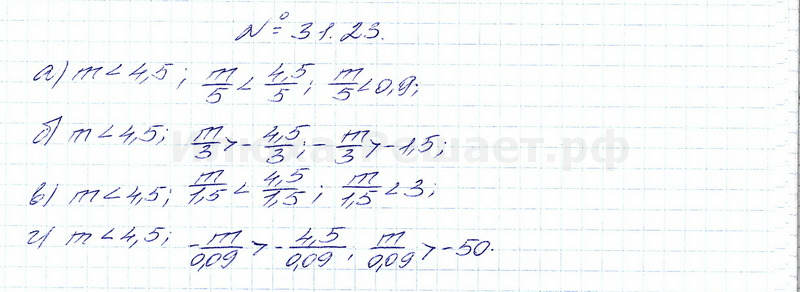 № 31.23.
а) m < 4,5; m/5 < 4,5/5; m/5 < 0,9;
б) m < 4,5; m/3 > -4,5/3; -m/3 > -1,5;
в) m < 4,5; m/1,5 < 4,5/1,5; m/1,5 < 3;
г) m < 4,5; -m/0,09 > -4,5/0,09; m/0,09 > -50.